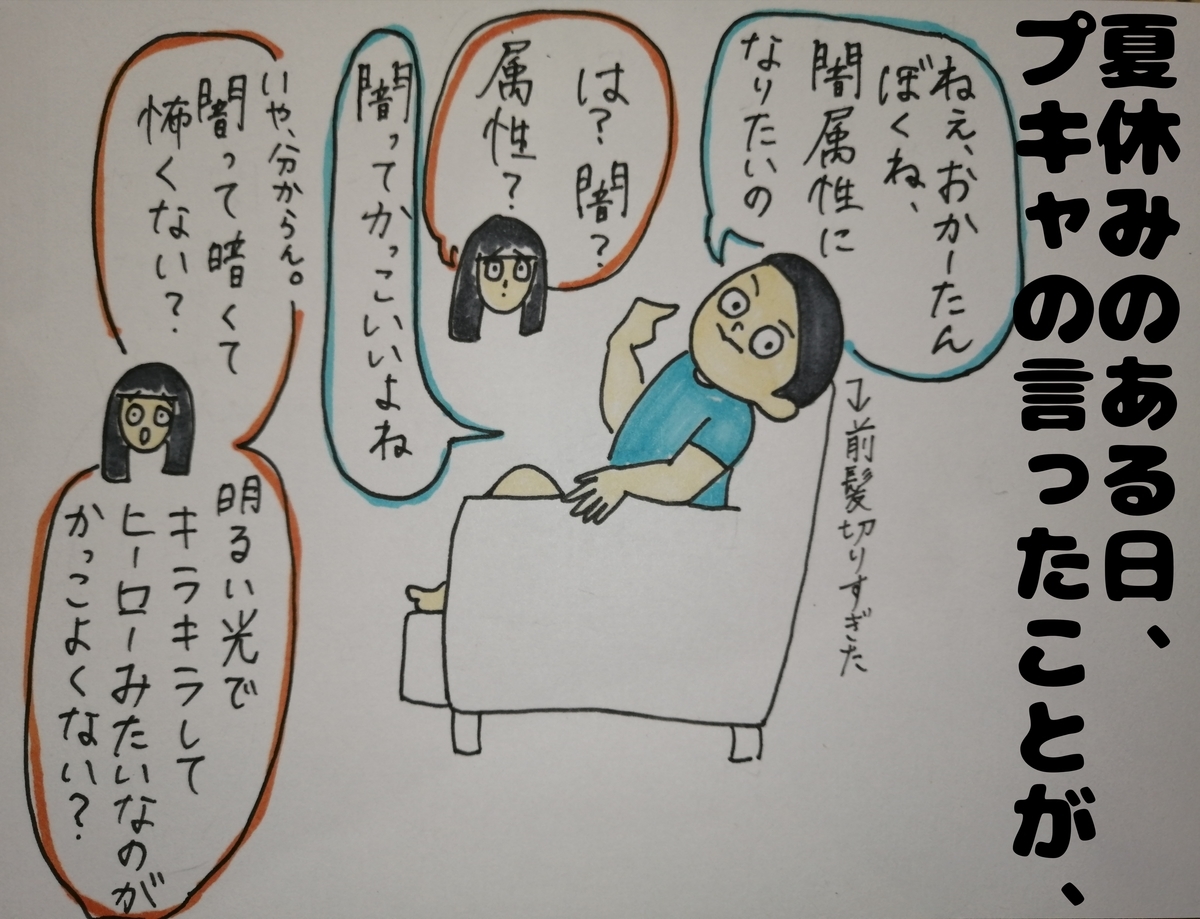 夏休みのある日、
プキャの言ったことが、
ねぇ、おかーたん
ぼくね、
闇属性に
なりたいの
↓前髪切りすぎた
は？闇？
属性？
闇ってかっこいいよね
いや、分からん。
闇って暗くて
怖くない？
明るい光で
キラキラして
ヒーローみたいなのが
かっこよくない？